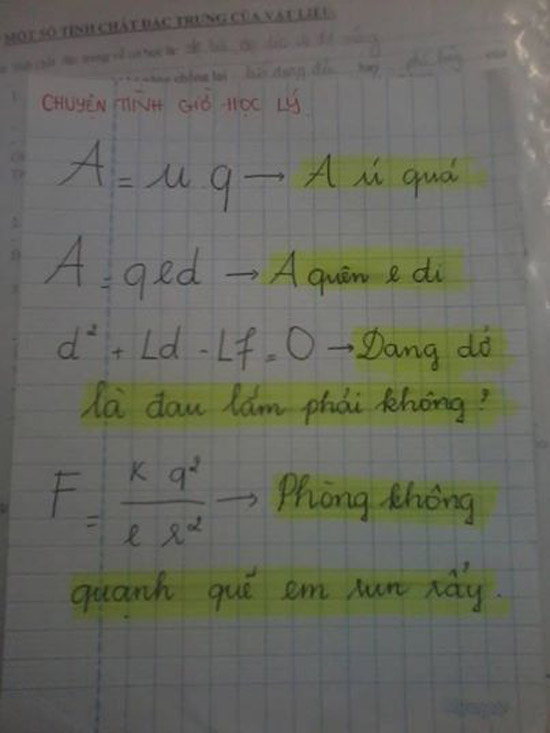 MỘT SỐ TÍNH CHẤT ĐẶC TRƯNG CỦA VẬT LIỆU
CHUYỆN TÌNH GIỜ HỌC LÝ
A = u q → A ú quá
A = qed → A quên e đi
d² + Ld - Lf = O → Dang dở
là đau lắm phải không?
F = k q² / e r² → Phòng không
quạnh quẽ em run rẩy.